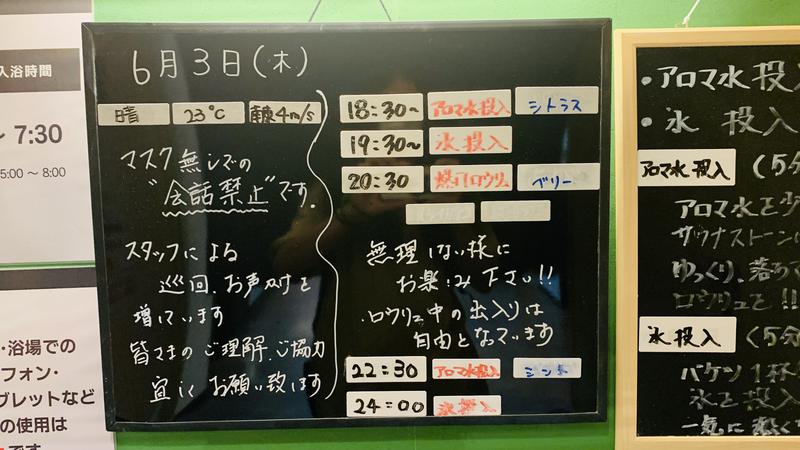 入浴時間
～ 7:30
5:00 ～ 8:00
・浴場での
フォン・
ブレットなど
の使用は
です
6月3日(木)
晴 23℃ 4m/s
マスク無しでの
"会話禁止"です.
スタッフによる
巡回、お声がけを
増しています
皆さまのご理解、ご協力
宜しくお願い致します
18:30~ アロマ水投入 シトラス
19:30~ 氷投入
20:30 爆汗ロウリュ ベリー
無理しない様に
お楽しみ下さい!!
・ロウリュ中の出入りは
自由となっています
22:30 アロマ水投入 ミント
24:00 氷投入
・アロマ水投入
・氷 投入
アロマ水投入 (5分
アロマ水を少
サウナストーンに
ゆっくり、落ち
ロウリュを!!
氷投入 (5分
バケツ1杯
氷を投入
一気に熱く